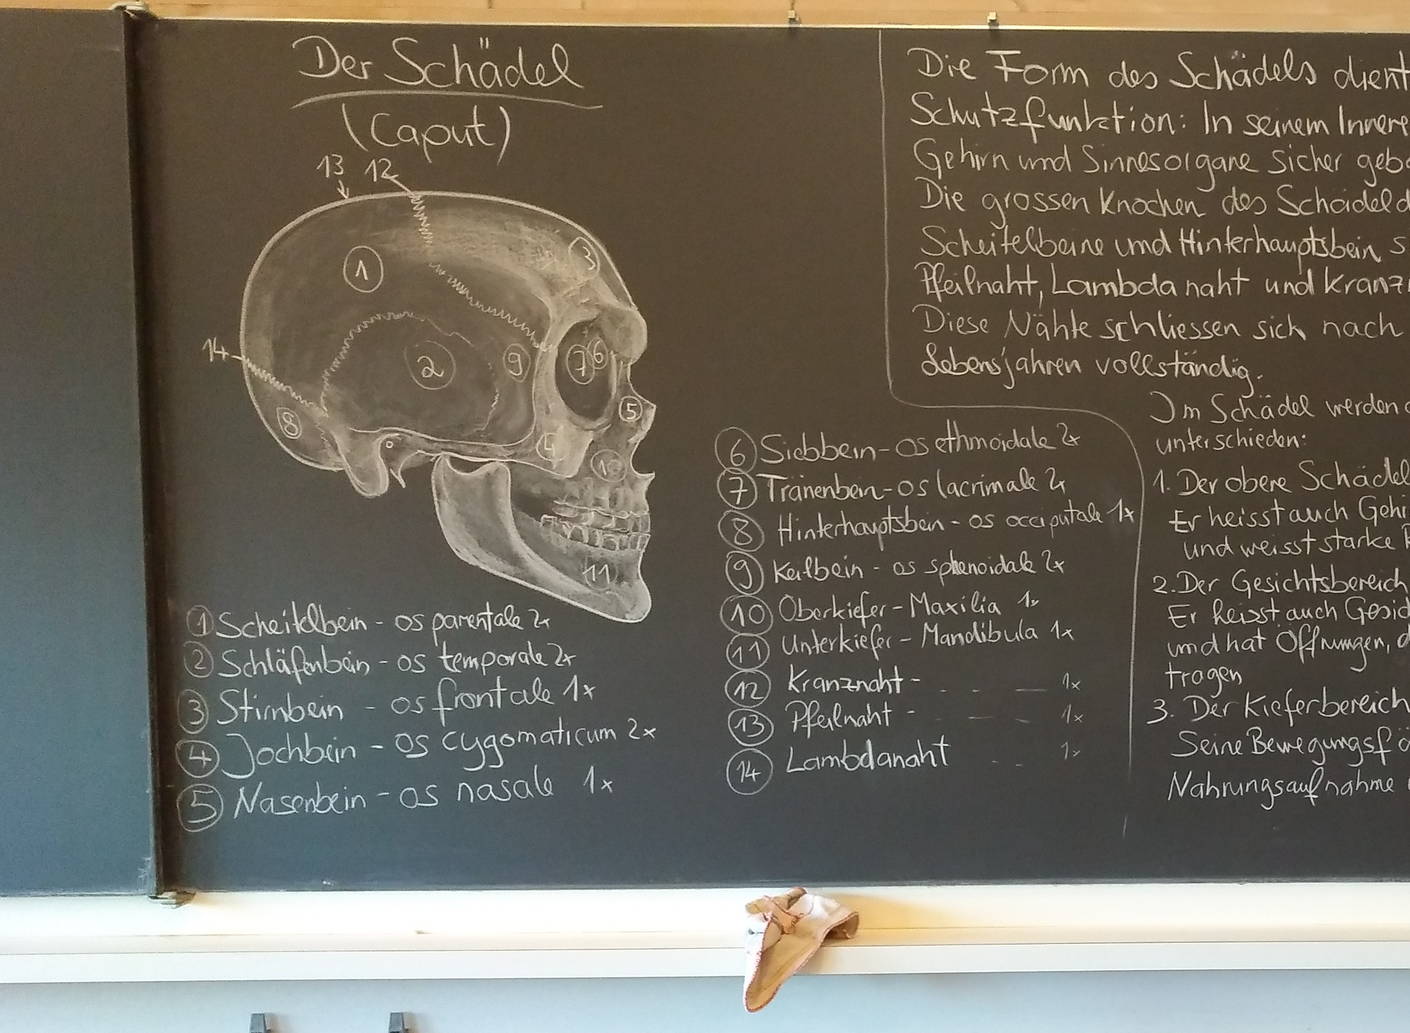 Der Schädel
(Caput)
13 12
1
3
14
2
9
7 6
8
5
4
10
11
① Scheitelbein - os parentale 2x
② Schläfenbein - os temporale 2x
③ Stirnbein - os frontale 1x
④ Jochbein - os cygomaticum 2x
⑤ Nasenbein - os nasale 1x
⑥ Siebbein - os ethmoidale 2x
⑦ Tränenbein - os lacrimale 2x
⑧ Hinterhauptsbein - os occiputale 1x
⑨ Keilbein - os sphenoidale 2x
⑩ Oberkiefer - Maxilia 1x
⑪ Unterkiefer - Mandibula 1x
⑫ Kranznaht - 1x
⑬ Pfeilnaht - 1x
⑭ Lambdanaht 1x
Die Form des Schädels dient
Schutzfunktion: In seinem Innere
Gehirn und Sinnesorgane sicher geb
Die grossen Knochen des Schädeld
Scheitelbeine und Hinterhauptsbein s
Pfeilnaht, Lambdanaht und Kranz
Diese Nähte schliessen sich nach
Lebensjahren vollständig.
Im Schädel werden
unterschieden:
1. Der obere Schädel
Er heisst auch Gehi
und weisst starke
2. Der Gesichtsbereich
Er heisst auch Gesic
und hat Öffnungen, d
tragen
3. Der Kieferbereich
Seine Bewegungsfä
Nahrungsaufnahme